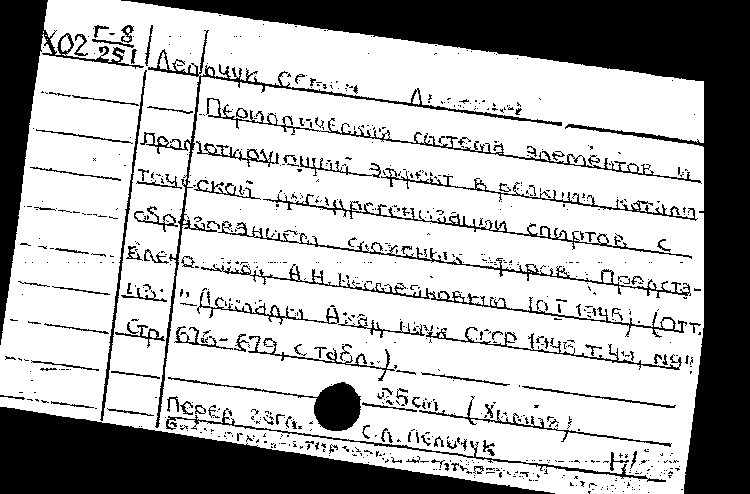 Х02 Г-8/251
Лельчук, Семен
Периодическая система элементов и
промотирующий эффект в реакции катали-
тической дегидрогенизации спиртов с
образованием сложных эфиров. (Предста-
влено акад. А.Н. Несмеяновым 10 I 1945). (Отт.
из: "Доклады Акад. наук СССР 1945. Т. №9"
Стр. 676-679, с табл.).
25см. (Химия).
Перед загл.: С.Л. Лельчук